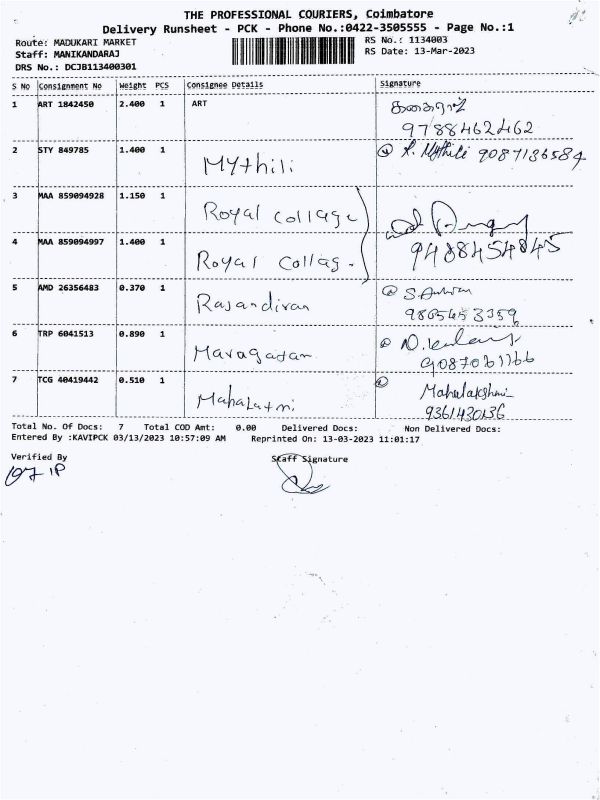 THE PROFESSIONAL COURIERS, Coimbatore
Delivery Runsheet - PCK - Phone No.:0422-3505555 - Page No.:1
Route: MADUKARI MARKET
Staff: MANIKANDARAJ
DRS No.: DCJB113400301
RS No.: 1134003
RS Date: 13-Mar-2023
S No Consignment No Weight PCS Consignee Details Signature
1 ART 1842450 2.400 1 ART
9788462462
2 STY 849785 1.400 1 Mythili R. Mythili 9087136584
3 MAA 859094928 1.150 1 Royal Collage
4 MAA 859094997 1.400 1 Royal Collag. 9488454845
5 AMD 26356483 0.370 1 Rajandiran
9865453359
6 TRP 6041513 0.890 1 Maragatan
9087061166
7 TCG 40419442 0.510 1 Mahalatmi Mahalakshmi
9361430136
Total No. Of Docs: 7 Total COD Amt: 0.00 Delivered Docs: Non Delivered Docs:
Entered By :KAVIPCK 03/13/2023 10:57:09 AM Reprinted On: 13-03-2023 11:01:17
Verified By Staff Signature